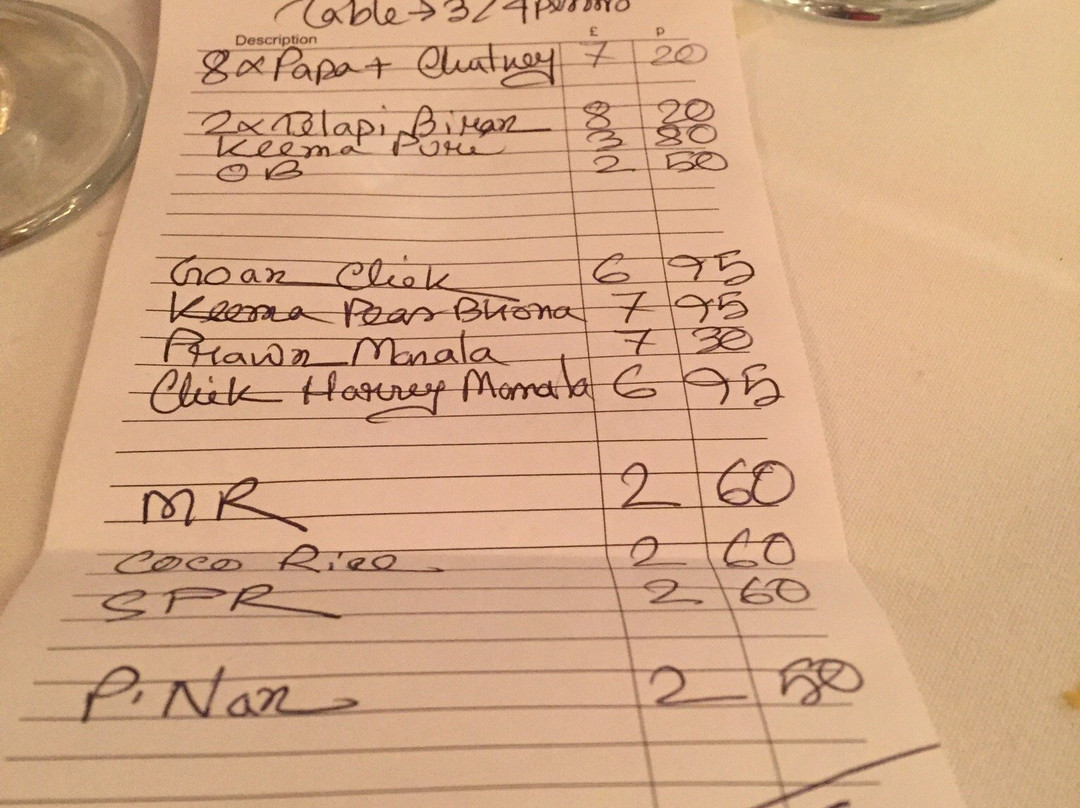 Table → 3/4 persons
Description £ P
8 x Papa + Chatney 7 20
2 x Telapi Biran 8 20
Keema Pure 3 80
OB 2 50
Goan Chick 6 95
Keema Peas Bhona 7 95
Prawn Masala 7 30
Chick Harrey Masala 6 95
MR 2 60
Coco Rice 2 60
SPR 2 60
P. Nan 2 50